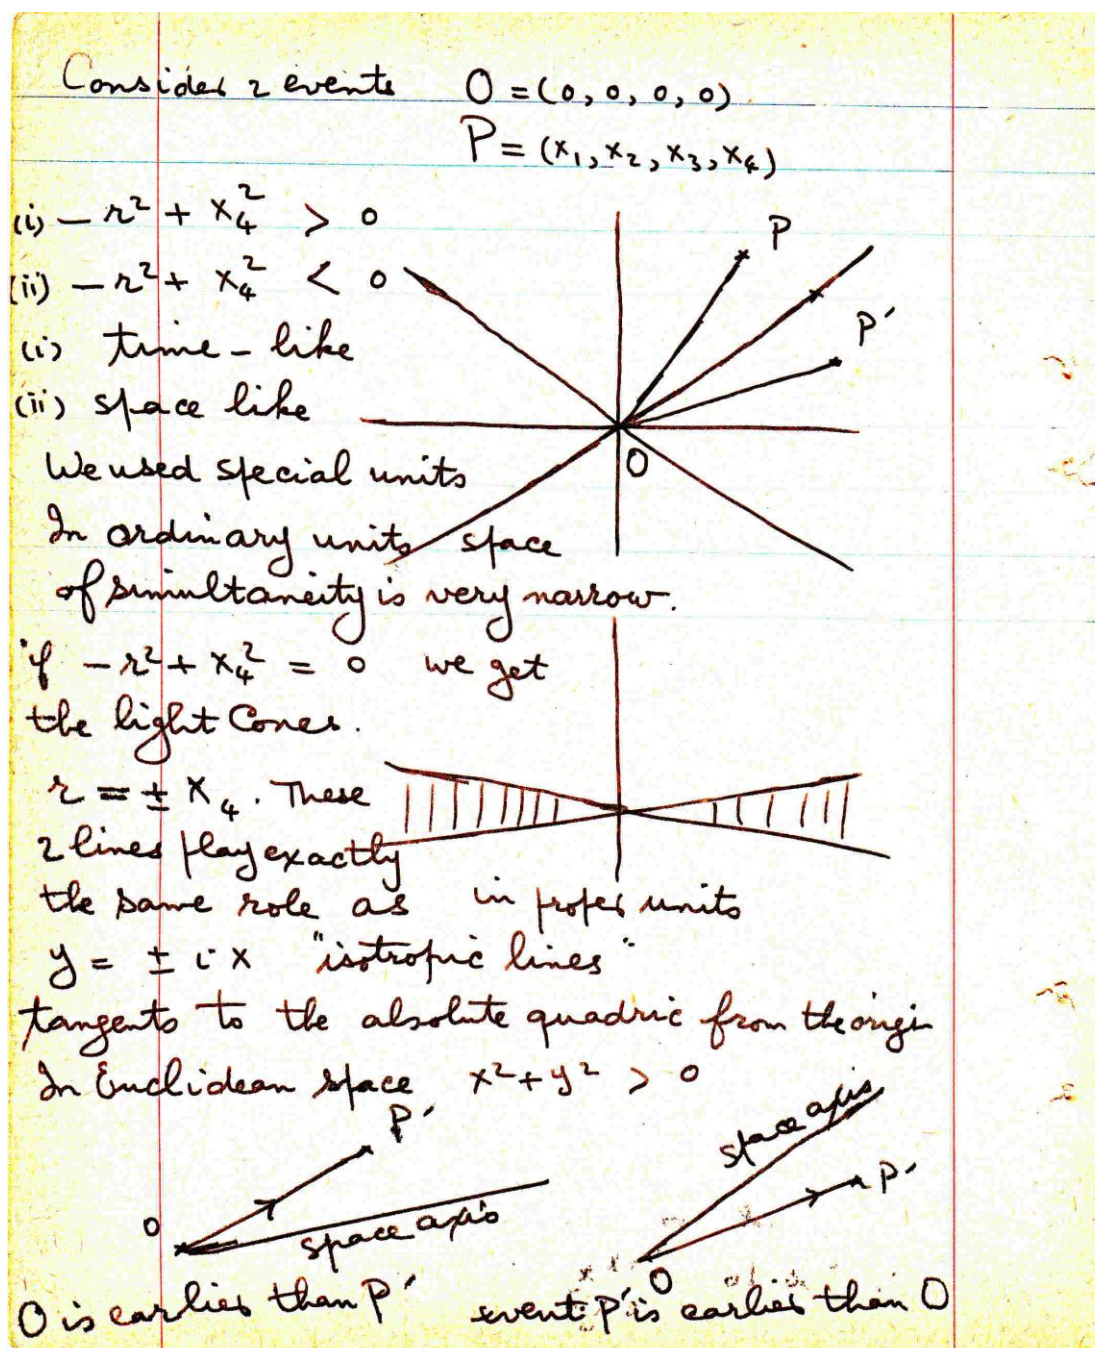 Consider 2 events O = (0, 0, 0, 0)
P = (x₁, x₂, x₃, x₄)
(i) − r² + x₄² > 0
(ii) − r² + x₄² < 0
P
P′
O
(i) time-like
(ii) space like
We used special units
In ordinary units space
of simultaneity is very narrow.
if − r² + x₄² = 0 we get
the light Cones.
r = ± x₄. These
2 lines play exactly
the same role as in proper units
y = ± i x "isotropic lines"
tangents to the absolute quadric from the origin
In Euclidean space x² + y² > 0
P′
O
space axis
space axis
P′
O
O is earlier than P′ event P′ is earlier than O